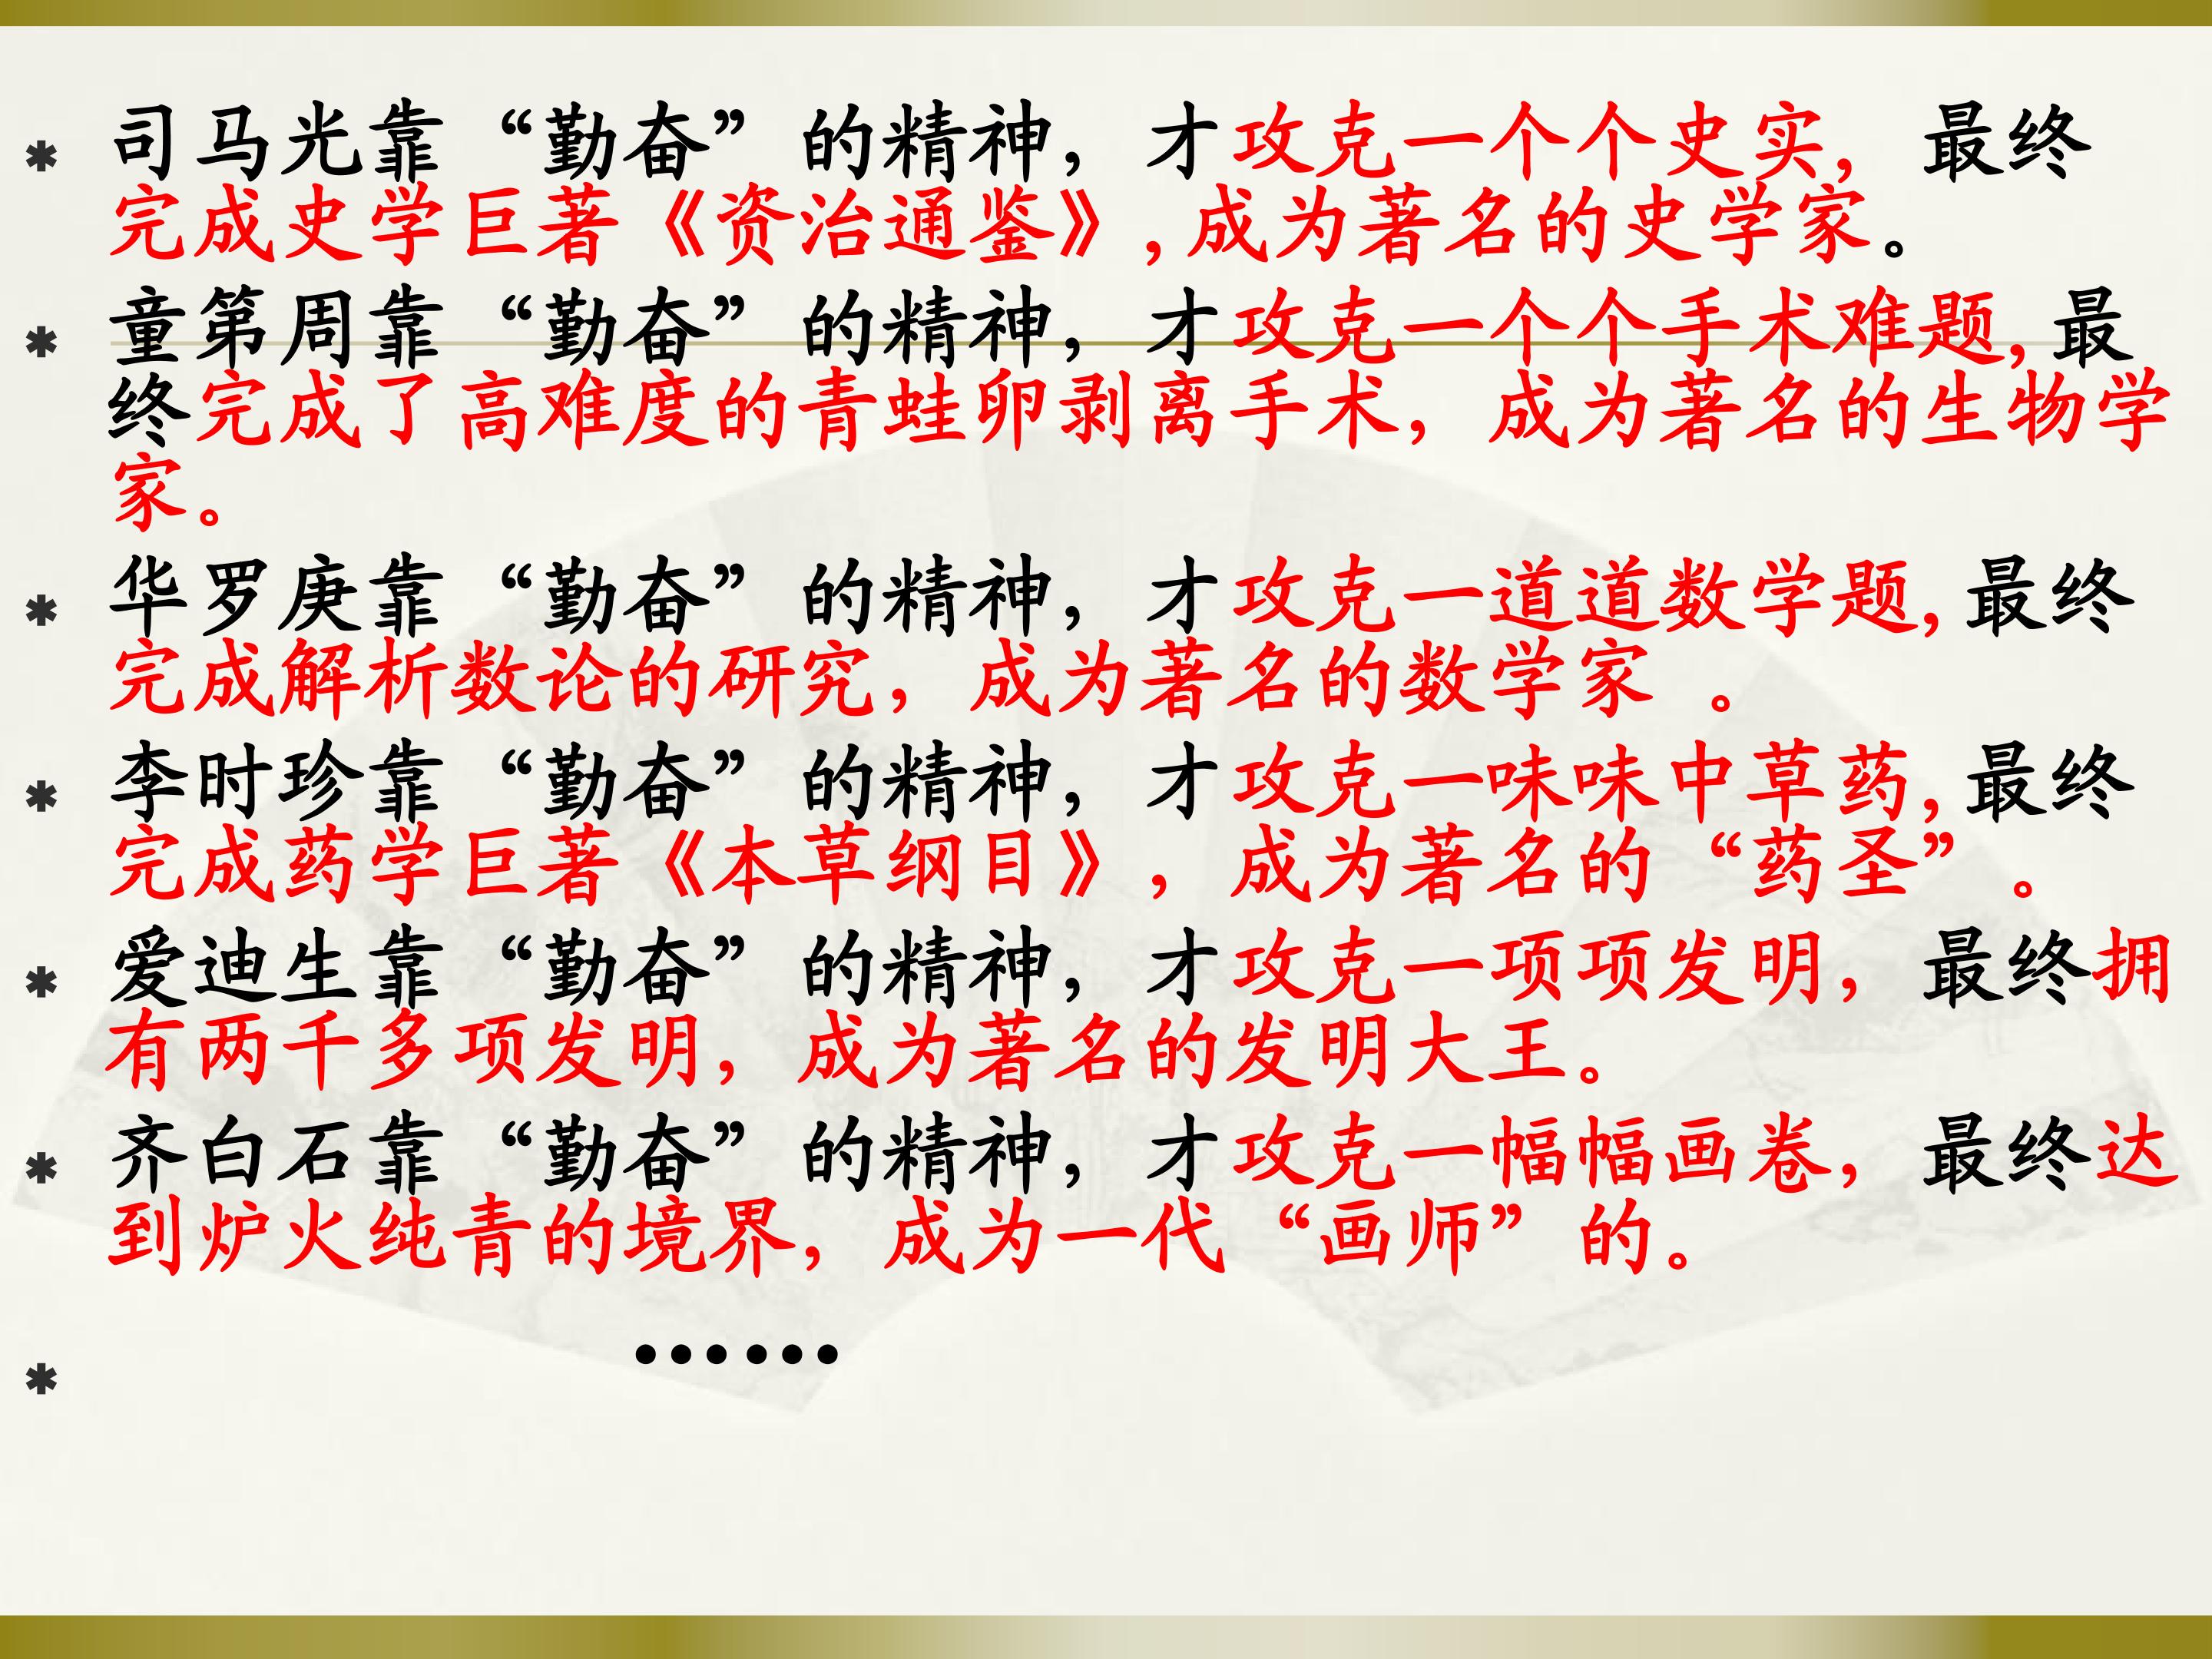 * 司马光靠“勤奋”的精神，才攻克一个个史实，最终
完成史学巨著《资治通鉴》,成为著名的史学家。
* 童第周靠“勤奋”的精神，才攻克一个个手术难题,最
终完成了高难度的青蛙卵剥离手术，成为著名的生物学
家。
* 华罗庚靠“勤奋”的精神，才攻克一道道数学题,最终
完成解析数论的研究，成为著名的数学家 。
* 李时珍靠“勤奋”的精神，才攻克一味味中草药,最终
完成药学巨著《本草纲目》，成为著名的“药圣”。
* 爱迪生靠“勤奋”的精神，才攻克一项项发明，最终拥
有两千多项发明，成为著名的发明大王。
* 齐白石靠“勤奋”的精神，才攻克一幅幅画卷，最终达
到炉火纯青的境界，成为一代“画师”的。
* ……